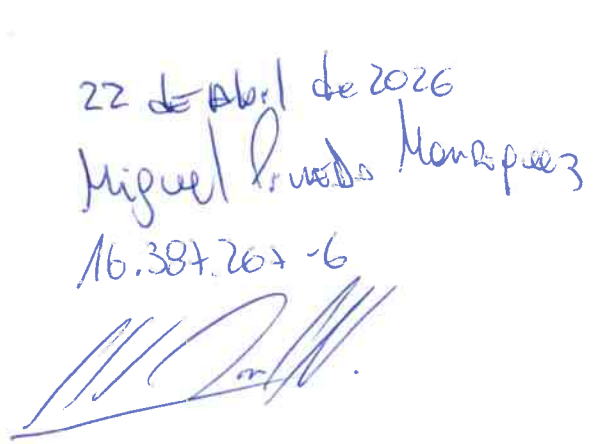 22 de Abril de 2026
Miguel Pineda Manriquez
16.387.267-6